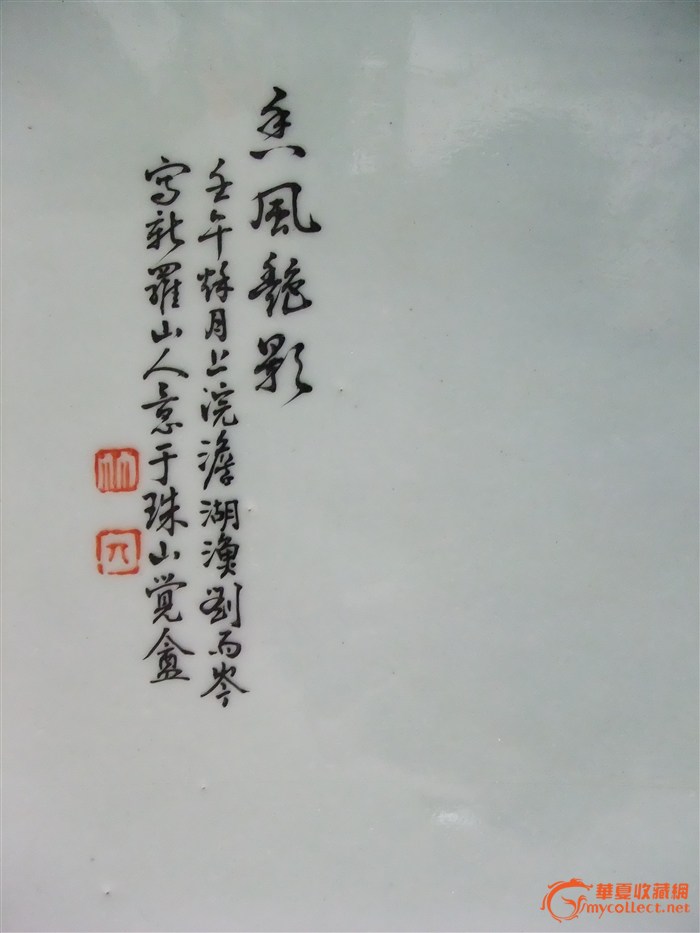 香風艷影
壬午秋月上浣澹湖漁劉雨岑
寫新羅山人意于珠山覺盦
華夏收藏網
mycollect.net